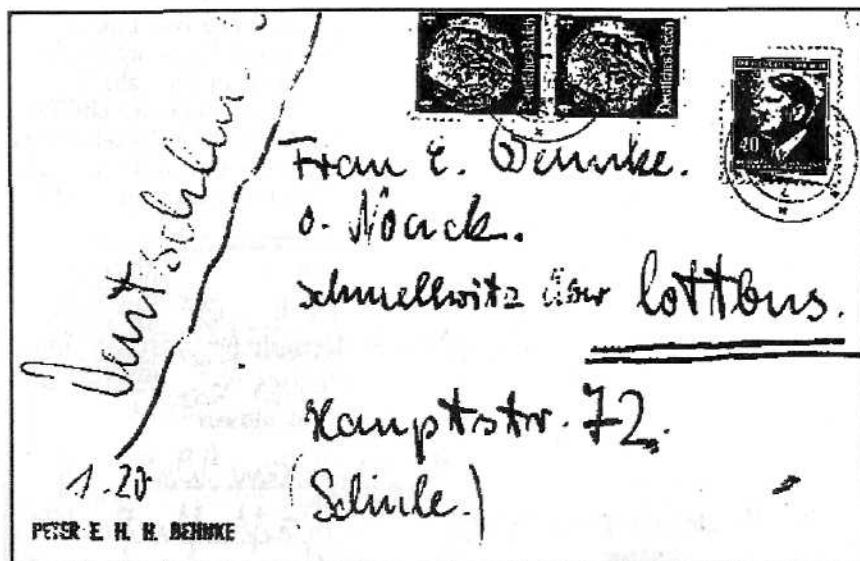 Deutschland
Deutsches Reich
Deutsches Reich
40
Frau E. Behnke.
b. Noack.
Schmellwitz über Cottbus.
Hauptstr. 72.
(Schule.)
1.20
PETER E. H. H. BEHNKE